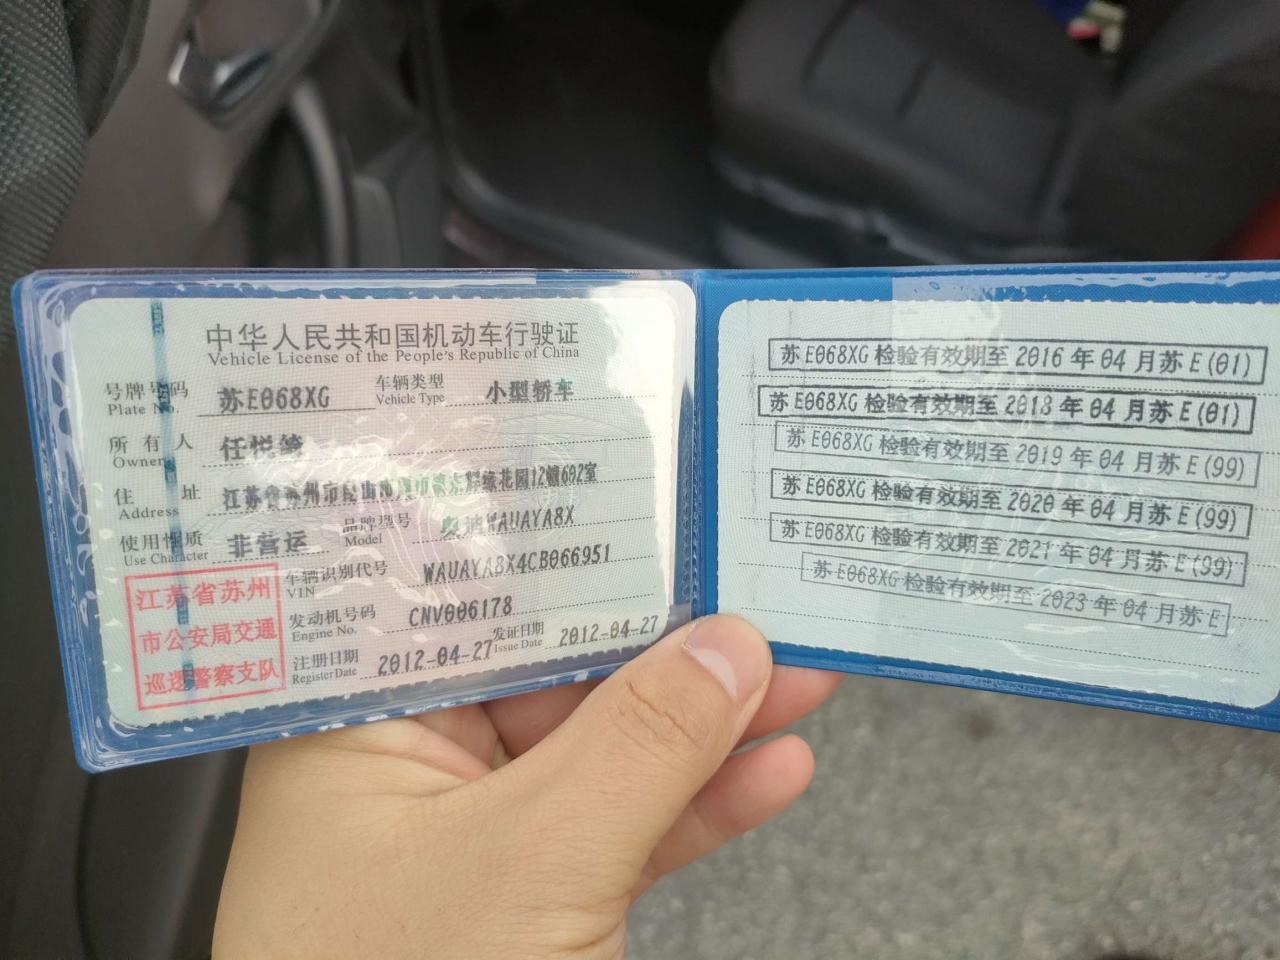 中华人民共和国机动车行驶证
Vehicle License of the People's Republic of China
号牌号码 苏E068XG 车辆类型 小型轿车
Plate No. Vehicle Type
所有人 任悦
Owner
住址 江苏省苏州市昆山市 花园12幢602室
Address
使用性质 非营运 品牌型号 奥迪WAUAYA8X
Use Character Model
车辆识别代号 WAUAYA8X4CB066951
VIN
发动机号码 CNV006178
Engine No.
注册日期 2012-04-27 发证日期 2012-04-27
Register Date Issue Date
江苏省苏州
市公安局交通
巡逻警察支队
苏E068XG 检验有效期至 2016 年 04 月苏 E (01)
苏 E068XG 检验有效期至 2018 年 04 月苏 E (01)
苏 E068XG 检验有效期至 2019 年 04 月苏 E (99)
苏 E068XG 检验有效期至 2020 年 04 月苏 E (99)
苏 E068XG 检验有效期至 2021 年 04 月苏 E (99)
苏 E068XG 检验有效期至 2023 年 04 月苏 E